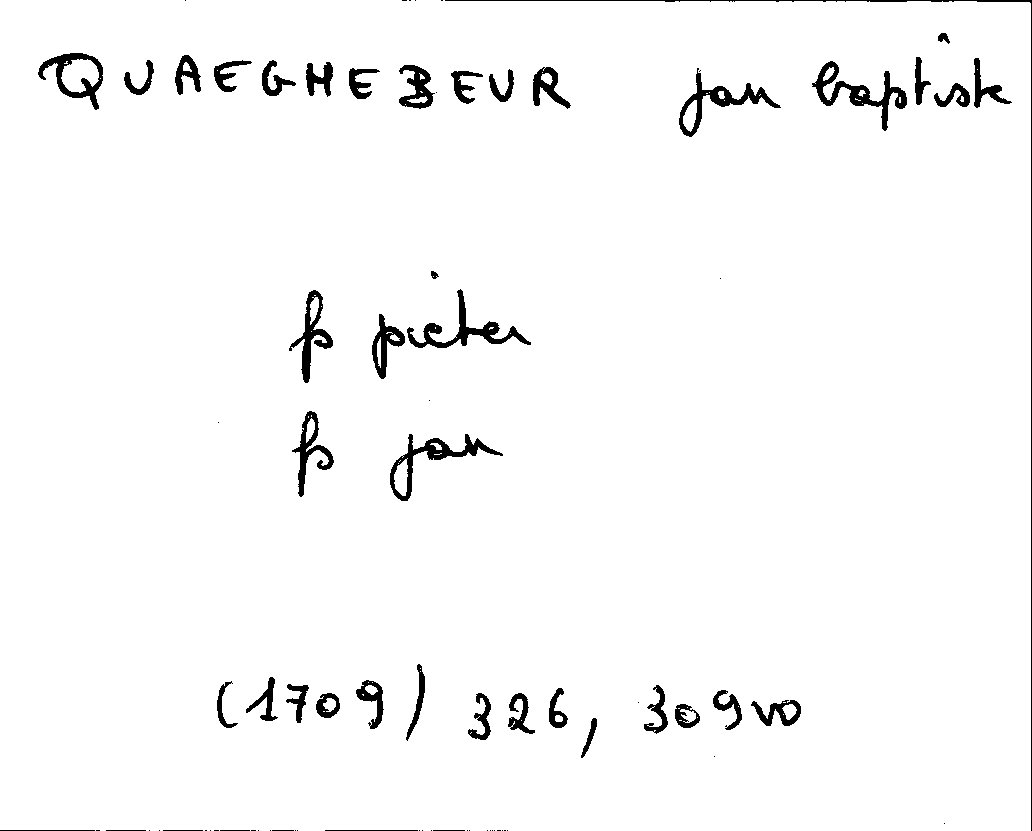 QUAEGHEBEUR jan baptiste
fs pieter
fs jan
(1709) 326, 309vo